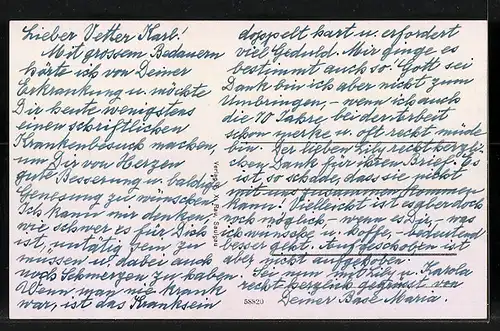 Lieber Vetter Karl!
Mit grossem Bedauern
hörte ich von Deiner
Erkrankung u. möchte
Dir heute wenigstens
einen schriftlichen
Krankenbesuch machen,
um Dir von Herzen
gute Besserung u. baldige
Genesung zu wünschen.
Ich kann mir denken,
wie schwer es für Dich
ist, untätig sein zu
müssen u. dabei auch
noch Schmerzen zu haben.
Wenn man nie krank
war, ist das Kranksein
doppelt hart u. erfordert
viel Geduld. Mir ginge es
bestimmt auch so. Gott sei
Dank bin ich aber nicht zum
Umbringen, – wenn ich auch
die 70 Jahre bei der Arbeit
schon merke u. oft recht müde
bin. Der lieben Lily recht herzli-
chen Dank für ihren Brief. Es
ist so schade, dass sie nicht
mit uns zusammen kommen
kann! Vielleicht ist es aber doch
noch möglich – wenn es Dir, – was
ich wünsche u. hoffe, – bedeutend
besser geht. Aufgeschoben ist
aber nicht aufgehoben.
Sei nun mit Lily u. Karola
recht herzlich gegrüsst von
Deiner Base Maria.
58820